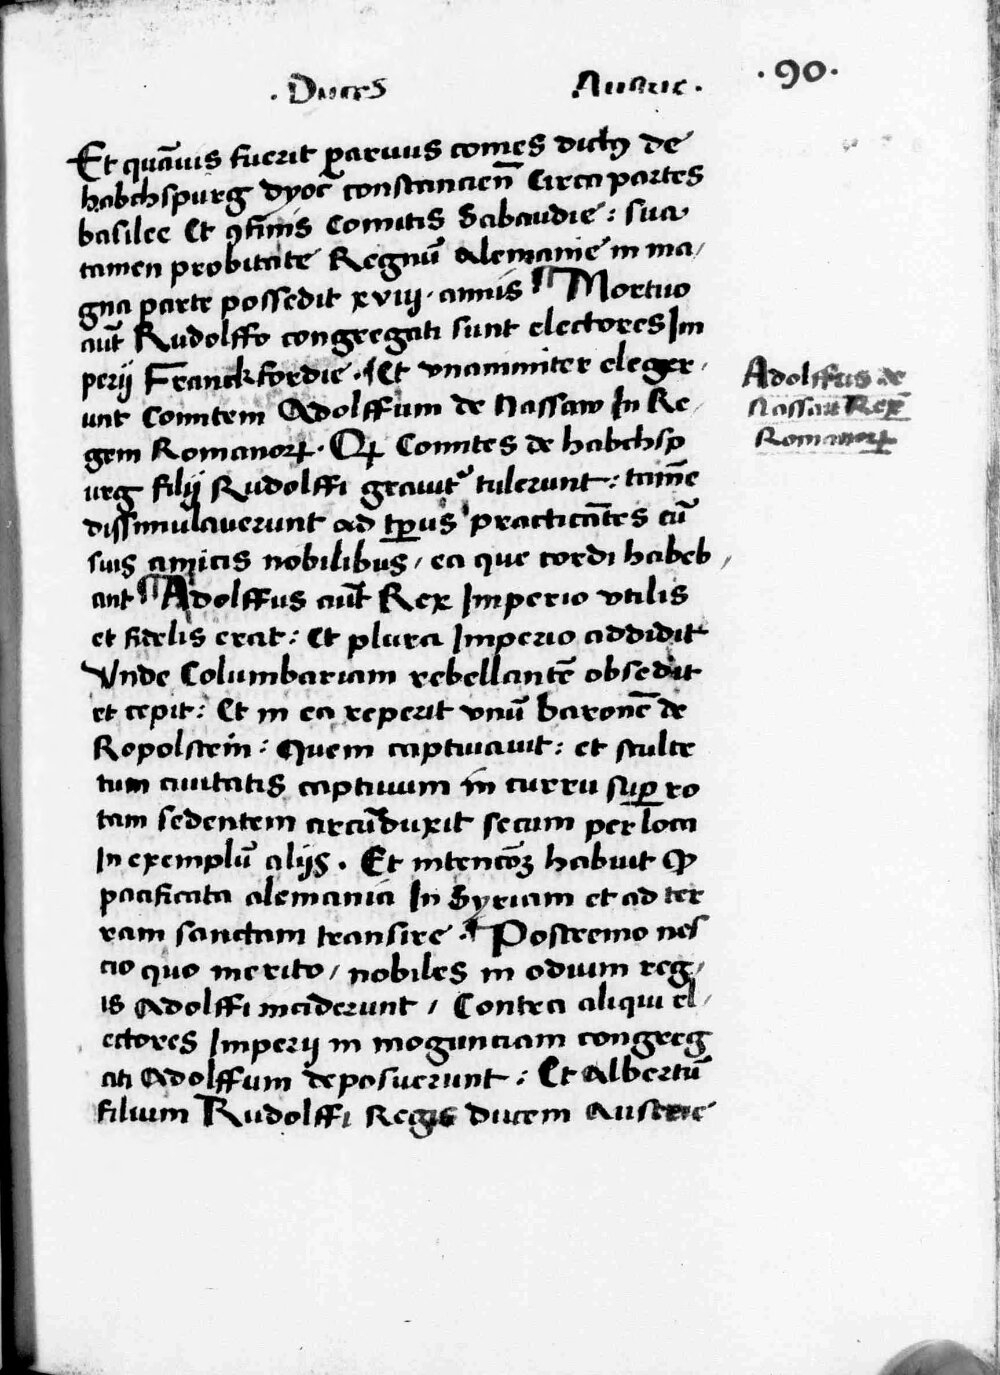 . Duces Austrie .
. 90 .
Et quãuis fuerit paruus comes dictꝰ de
habchspurg dyoc̄ constancieñ Circa partes
basilee Et ꝯfinis Comitis Sabaudie : sua
tamen probitate Regnũ alemanie in ma/
gna parte possedit xviij . annis ¶ Mortuo
aut̃ Rudolffo congregati sunt electores Im
perij Franckfordie . ¶ Et vnanimiter eleger/
unt Comitem Adolffum de Nassaw In Re/
gem Romanoꝝ . Qꝫ Comites de habchsp
urg filij Rudolffi grauitʼ tulerunt : tamẽ
dissimulauerunt ad tp̱us practicãtes cũ
suis amicis nobilibus / ea que cordi habeb/
ant ¶ Adolffus aut̃ Rex Imperio vtilis
et fidelis erat : Et plura Imperio addidit
Vnde Columbariam rebellantẽ obsedit
et cepit : Et in ea reperit vnũ baronẽ de
Ropolstein : Quem captiuauit : et sculte
tum ciuitatis captiuum in curru suꝑ ro
tam sedentem circũduxit secum per loca
In exemplũ alijs . Et intencõꝫ habuit ꝙ
pacificata alemania In Syriam et ad ter
ram sanctam transire . ¶ Postremo nes
cio quo merito / nobiles in odium reg/
is Adolffi inciderunt / Contra aliqui el/
ectores Imperij in moguntiam congreg
ati Adolffum deposuerunt : Et Albertũ
filium Rudolffi Regis ducem Austrie
Adolffus de
Nassau Rex
Romanoꝝ